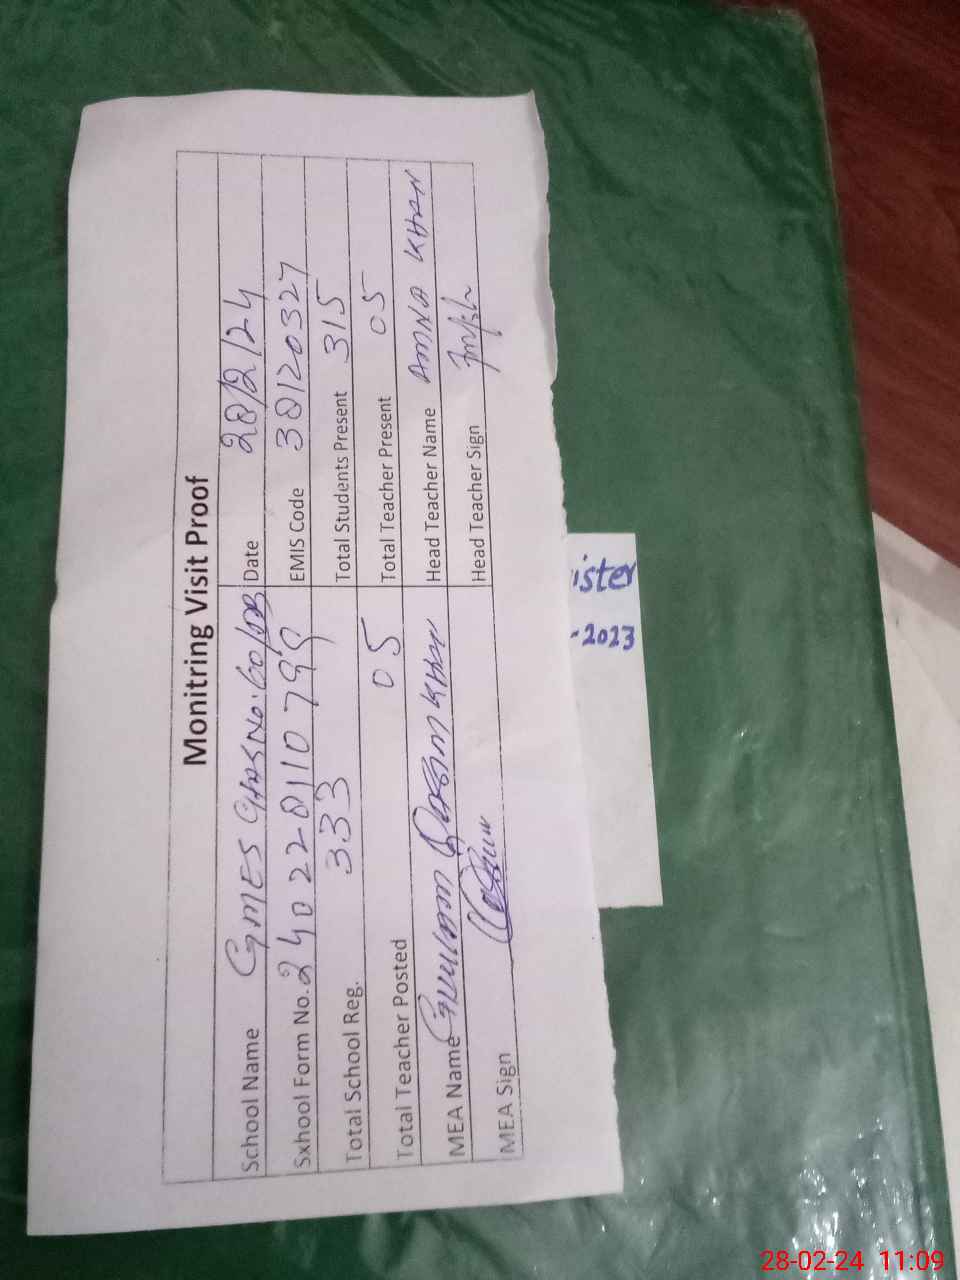 Monitring Visit Proof
School Name GMES CHAK No. 60/DB Date 28/2/24
Sxhool Form No. 24022811079 EMIS Code 38120327
Total School Reg. 333 Total Students Present 315
Total Teacher Posted 05 Total Teacher Present 05
MEA Name KHAN Head Teacher Name AMNA KHAN
MEA Sign Head Teacher Sign
ister
-2023
28-02-24 11:09